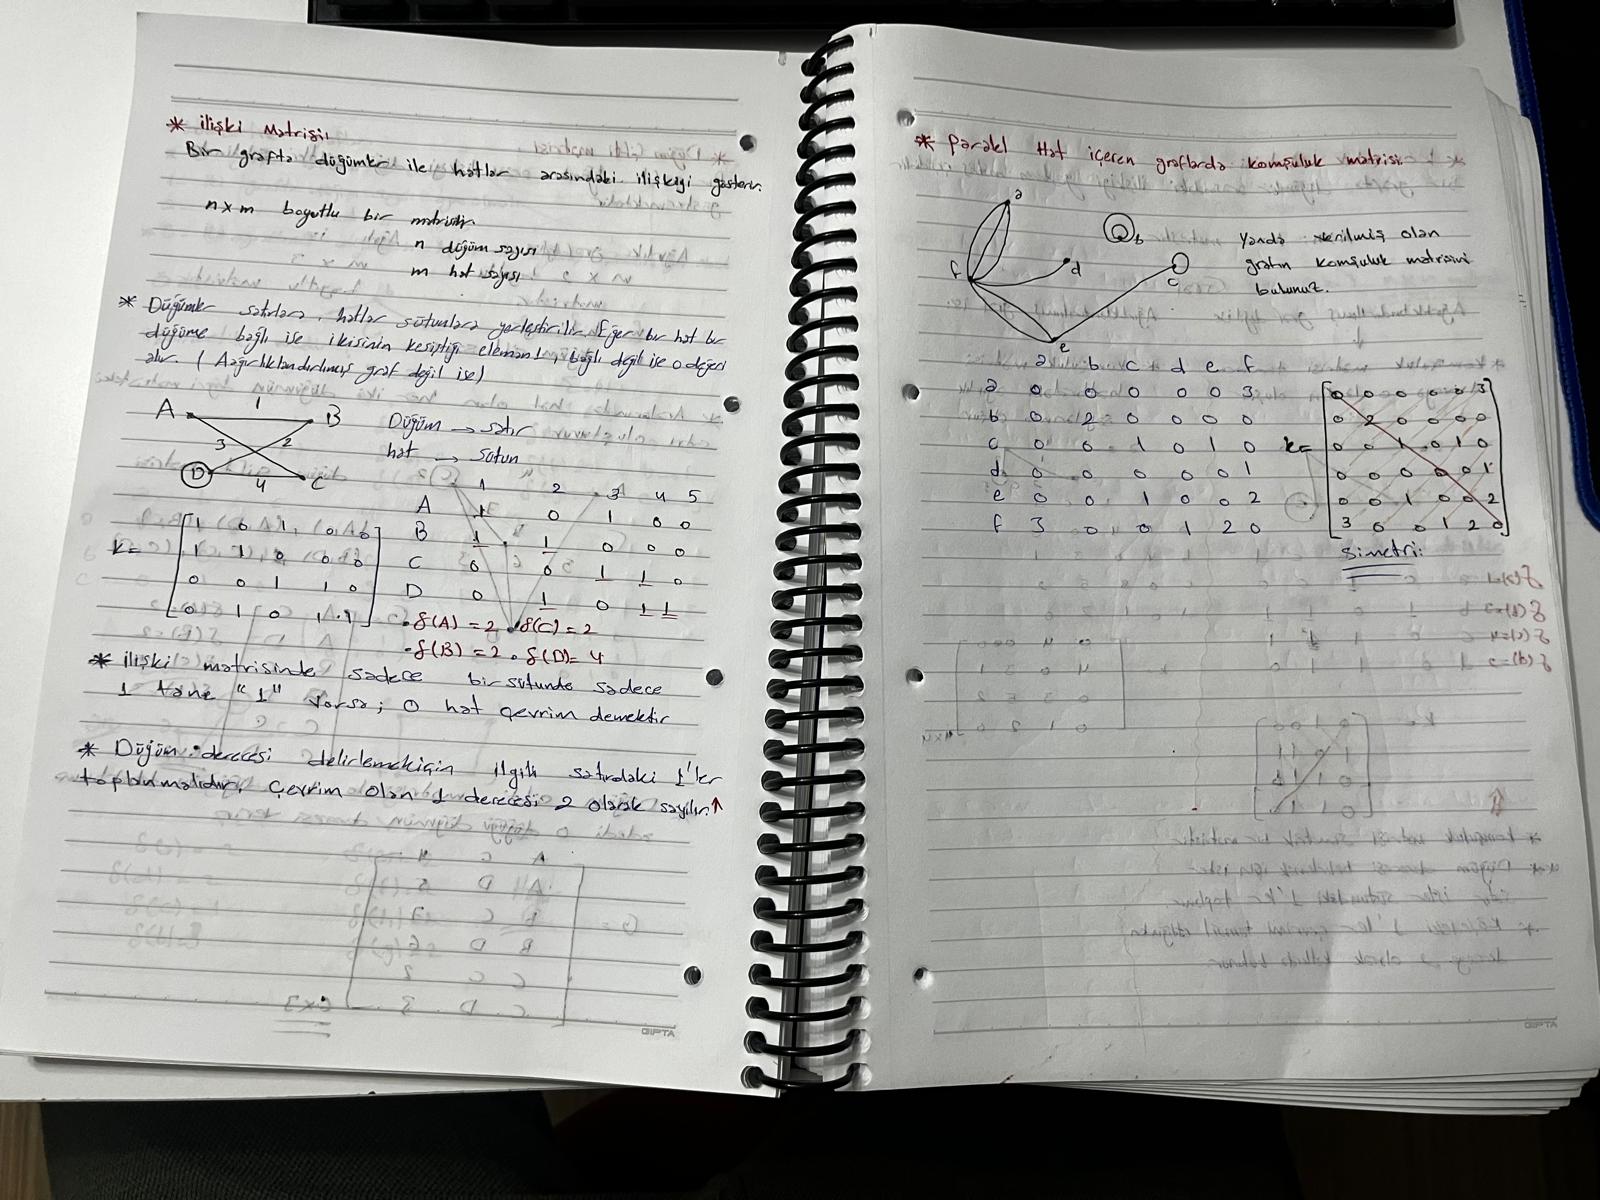 * ilişki Matrisi:
Bir grafta düğümler ile hatlar arasındaki ilişkiyi gösterir.
nxm boyutlu bir matristir.
n düğüm sayısı
m hat sayısı
* Düğümler satırlara, hatlar sütunlara yerleştirilir. Eğer bir hat bir
düğüme bağlı ise ikisinin kesiştiği eleman 1, bağlı değil ise 0 değeri
alır. (Aağırlıklandırılmış graf değil ise)
A 1 B
3 2
D 4 C
Düğüm → satır
hat → sütun
1 2 3 4 5
A 1 0 1 0 0
B 1 1 0 0 0
C 0 0 1 1 0
D 0 1 0 1 1
k=
1 0 1 0 0
1 1 0 0 0
0 0 1 1 0
0 1 0 1 1
• δ(A) = 2 • δ(C) = 2
• δ(B) = 2 • δ(D) = 4
* ilişki matrisinde sadece bir sütunda sadece
1 tane "1" varsa; O hat çevrim demektir
* Düğüm derecesi delirlemek için ilgili satırdaki 1'ler
toplanmalıdır, çevrim olan 1 derecesi 2 olarak sayılır. ↑
GIPTA
* Paralel Hat içeren graflarda komşuluk matrisi:
a
b
f d
c
e
Yanda verilmiş olan
grafın komşuluk matrisini
bulunuz.
a b c d e f
a 0 0 0 0 0 3
b 0 2 0 0 0 0
c 0 0 1 0 1 0
d 0 0 0 0 0 1
e 0 0 1 0 0 2
f 3 0 0 1 2 0
k=
0 0 0 0 0 3
0 2 0 0 0 0
0 0 1 0 1 0
0 0 0 0 0 1
0 0 1 0 0 2
3 0 0 1 2 0
Simetri:
GIPTA